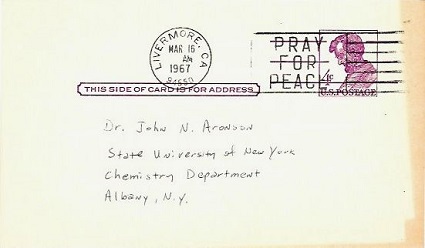 LIVERMORE, CA
MAR 16
AM
1967
94550
PRAY
FOR
PEACE
4¢
U.S. POSTAGE
THIS SIDE OF CARD IS FOR ADDRESS
Dr. John N. Aronson
State University of New York
Chemistry Department
Albany, N.Y.